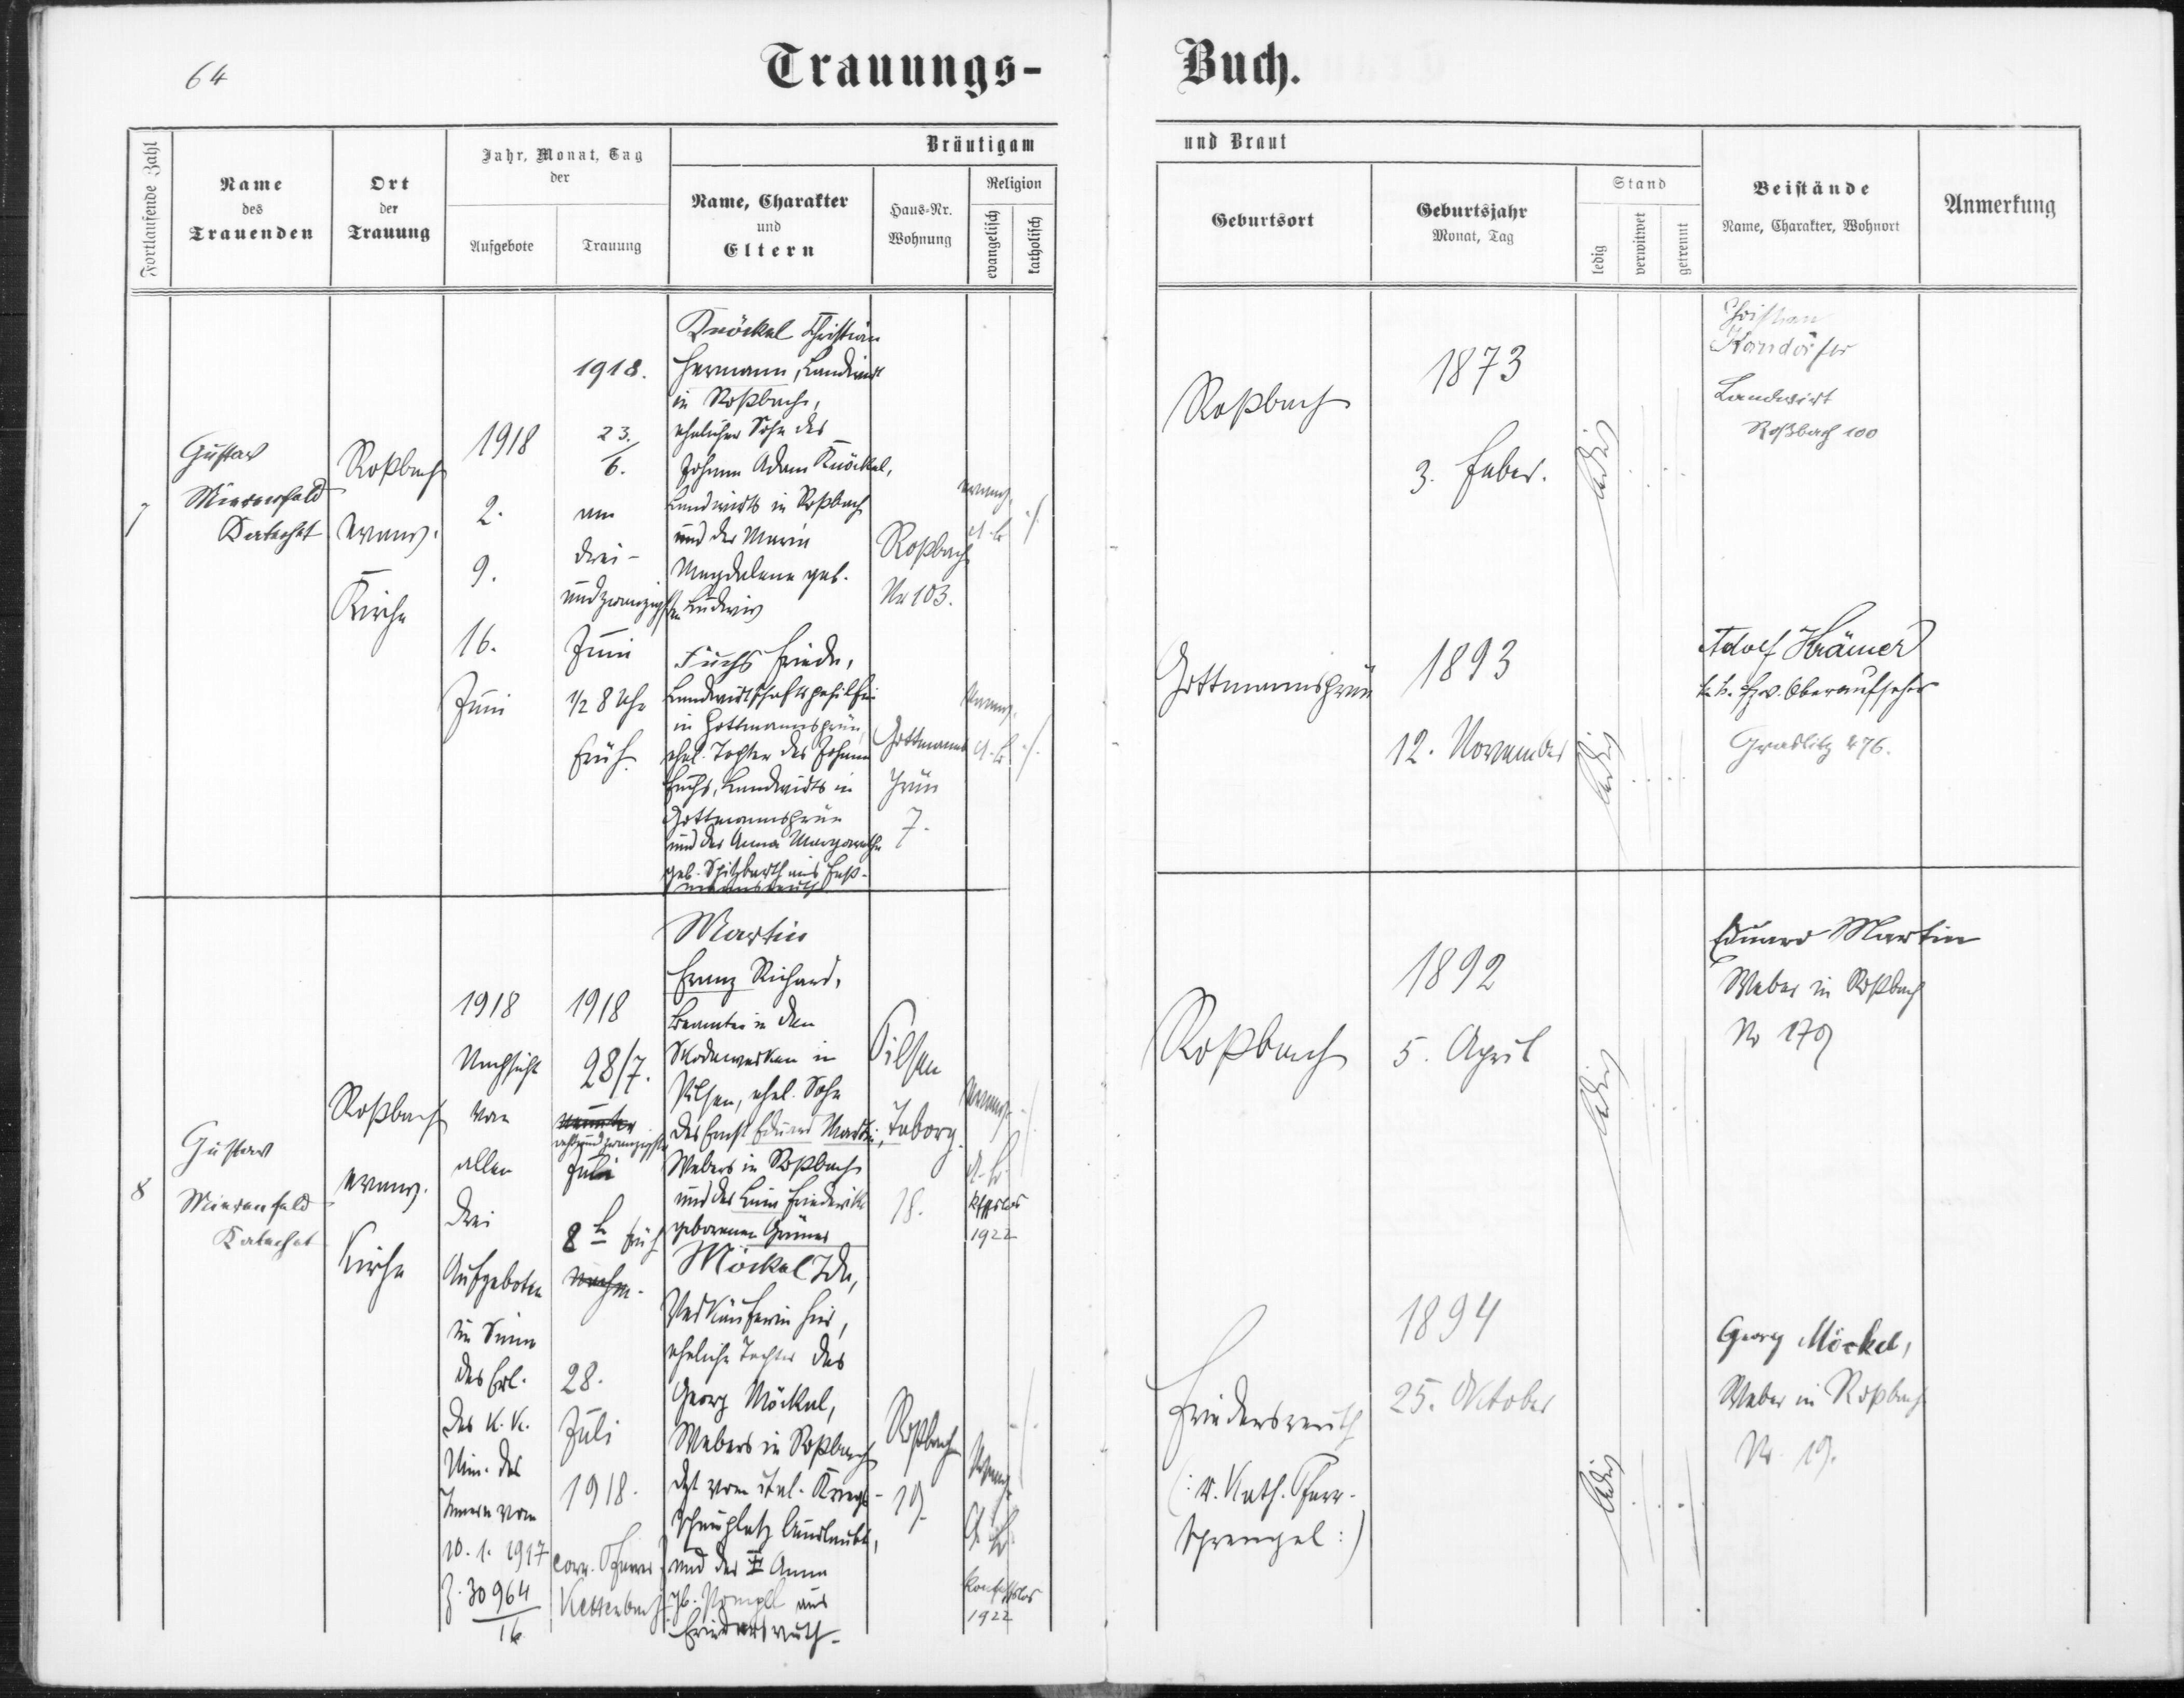 64
Trauungs-
Buch.
Fortlaufende Zahl
Name
des
Trauenden
Ort
der
Trauung
Jahr, Monat, Tag
der
Aufgebote
Trauung
Bräutigam
Name, Charakter
und
Eltern
Haus-Nr.
Wohnung
Religion
evangelisch
katholisch
und Braut
Geburtsort
Geburtsjahr
Monat, Tag
Stand
ledig
verwitwet
getrennt
Beistände
Name, Charakter, Wohnort
Anmerkung
7
Gustav
Katechet
Roßbach
evang.
Kirche
1918
2.
9.
16.
Juni
1918.
23./6.
am
drei-
undzwanzigsten
Juni
1/2 8 Uhr
früh
Knöckel Christian
Hermann, Landwirt
in Roßbach,
ehelicher Sohn des
Johann Adam Knöckel,
Landwirts in Roßbach
und der Maria
Magdalena geb.
Ludwig
Roßbach
Nr 103.
evang.
A. B.
Roßbach
1873
3. Feber.
ledig
Christian
Landwirt
Roßbach 100
Fuchs Frieda,
Landwirtschaftsgehilfin
in Gottmannsgrün,
ehel. Tochter des Johann
Fuchs, Landwirts in
Gottmannsgrün
und der Anna Margaretha
geb. Spitzbarth aus
Gottmanns
grün
7.
evang.
A. B.
Gottmannsgrün
1893
12. November
ledig
Adolf Krämer
Oberaufseher
Graslitz 476.
8
Gustav
Katechet
Roßbach
evang.
Kirche
1918
Nachsicht
von
allen
drei
Aufgeboten
im Sinne
des Erl.
des k. k.
Min. des
Innern vom
10. 1. 1917
Z. 30964
16
1918
28/7.
achtundzwanzigsten
Juli
8 h früh
28.
Juli
1918.
corr. Pfarrer
Martin
Franz Richard,
Beamter in den
Skodawerken in
Pilsen, ehel. Sohn
des Ernst Eduard Martin,
Webers in Roßbach
und der Friederike
geborenen Grüner
Pilsen
Taborg.
18.
evang.
A. B.
1922
Roßbach
1892
5. April
ledig
Eduard Martin
Weber in Roßbach
Möckel Ida,
Verkäuferin hier,
eheliche Tochter des
Georg Möckel,
Webers in Roßbach
dzt vom ital. Kriegs-
schauplatz beurlaubt,
und der Anna
aus
Friedersreuth
Roßbach
19.
evang.
A. B.
konfesslos
1922
Friedersreuth
(: r. kath. Pfarr-
sprengel :)
1894
25. Oktober
ledig
Georg Möckel,
Weber in Roßbach
Nr. 19.